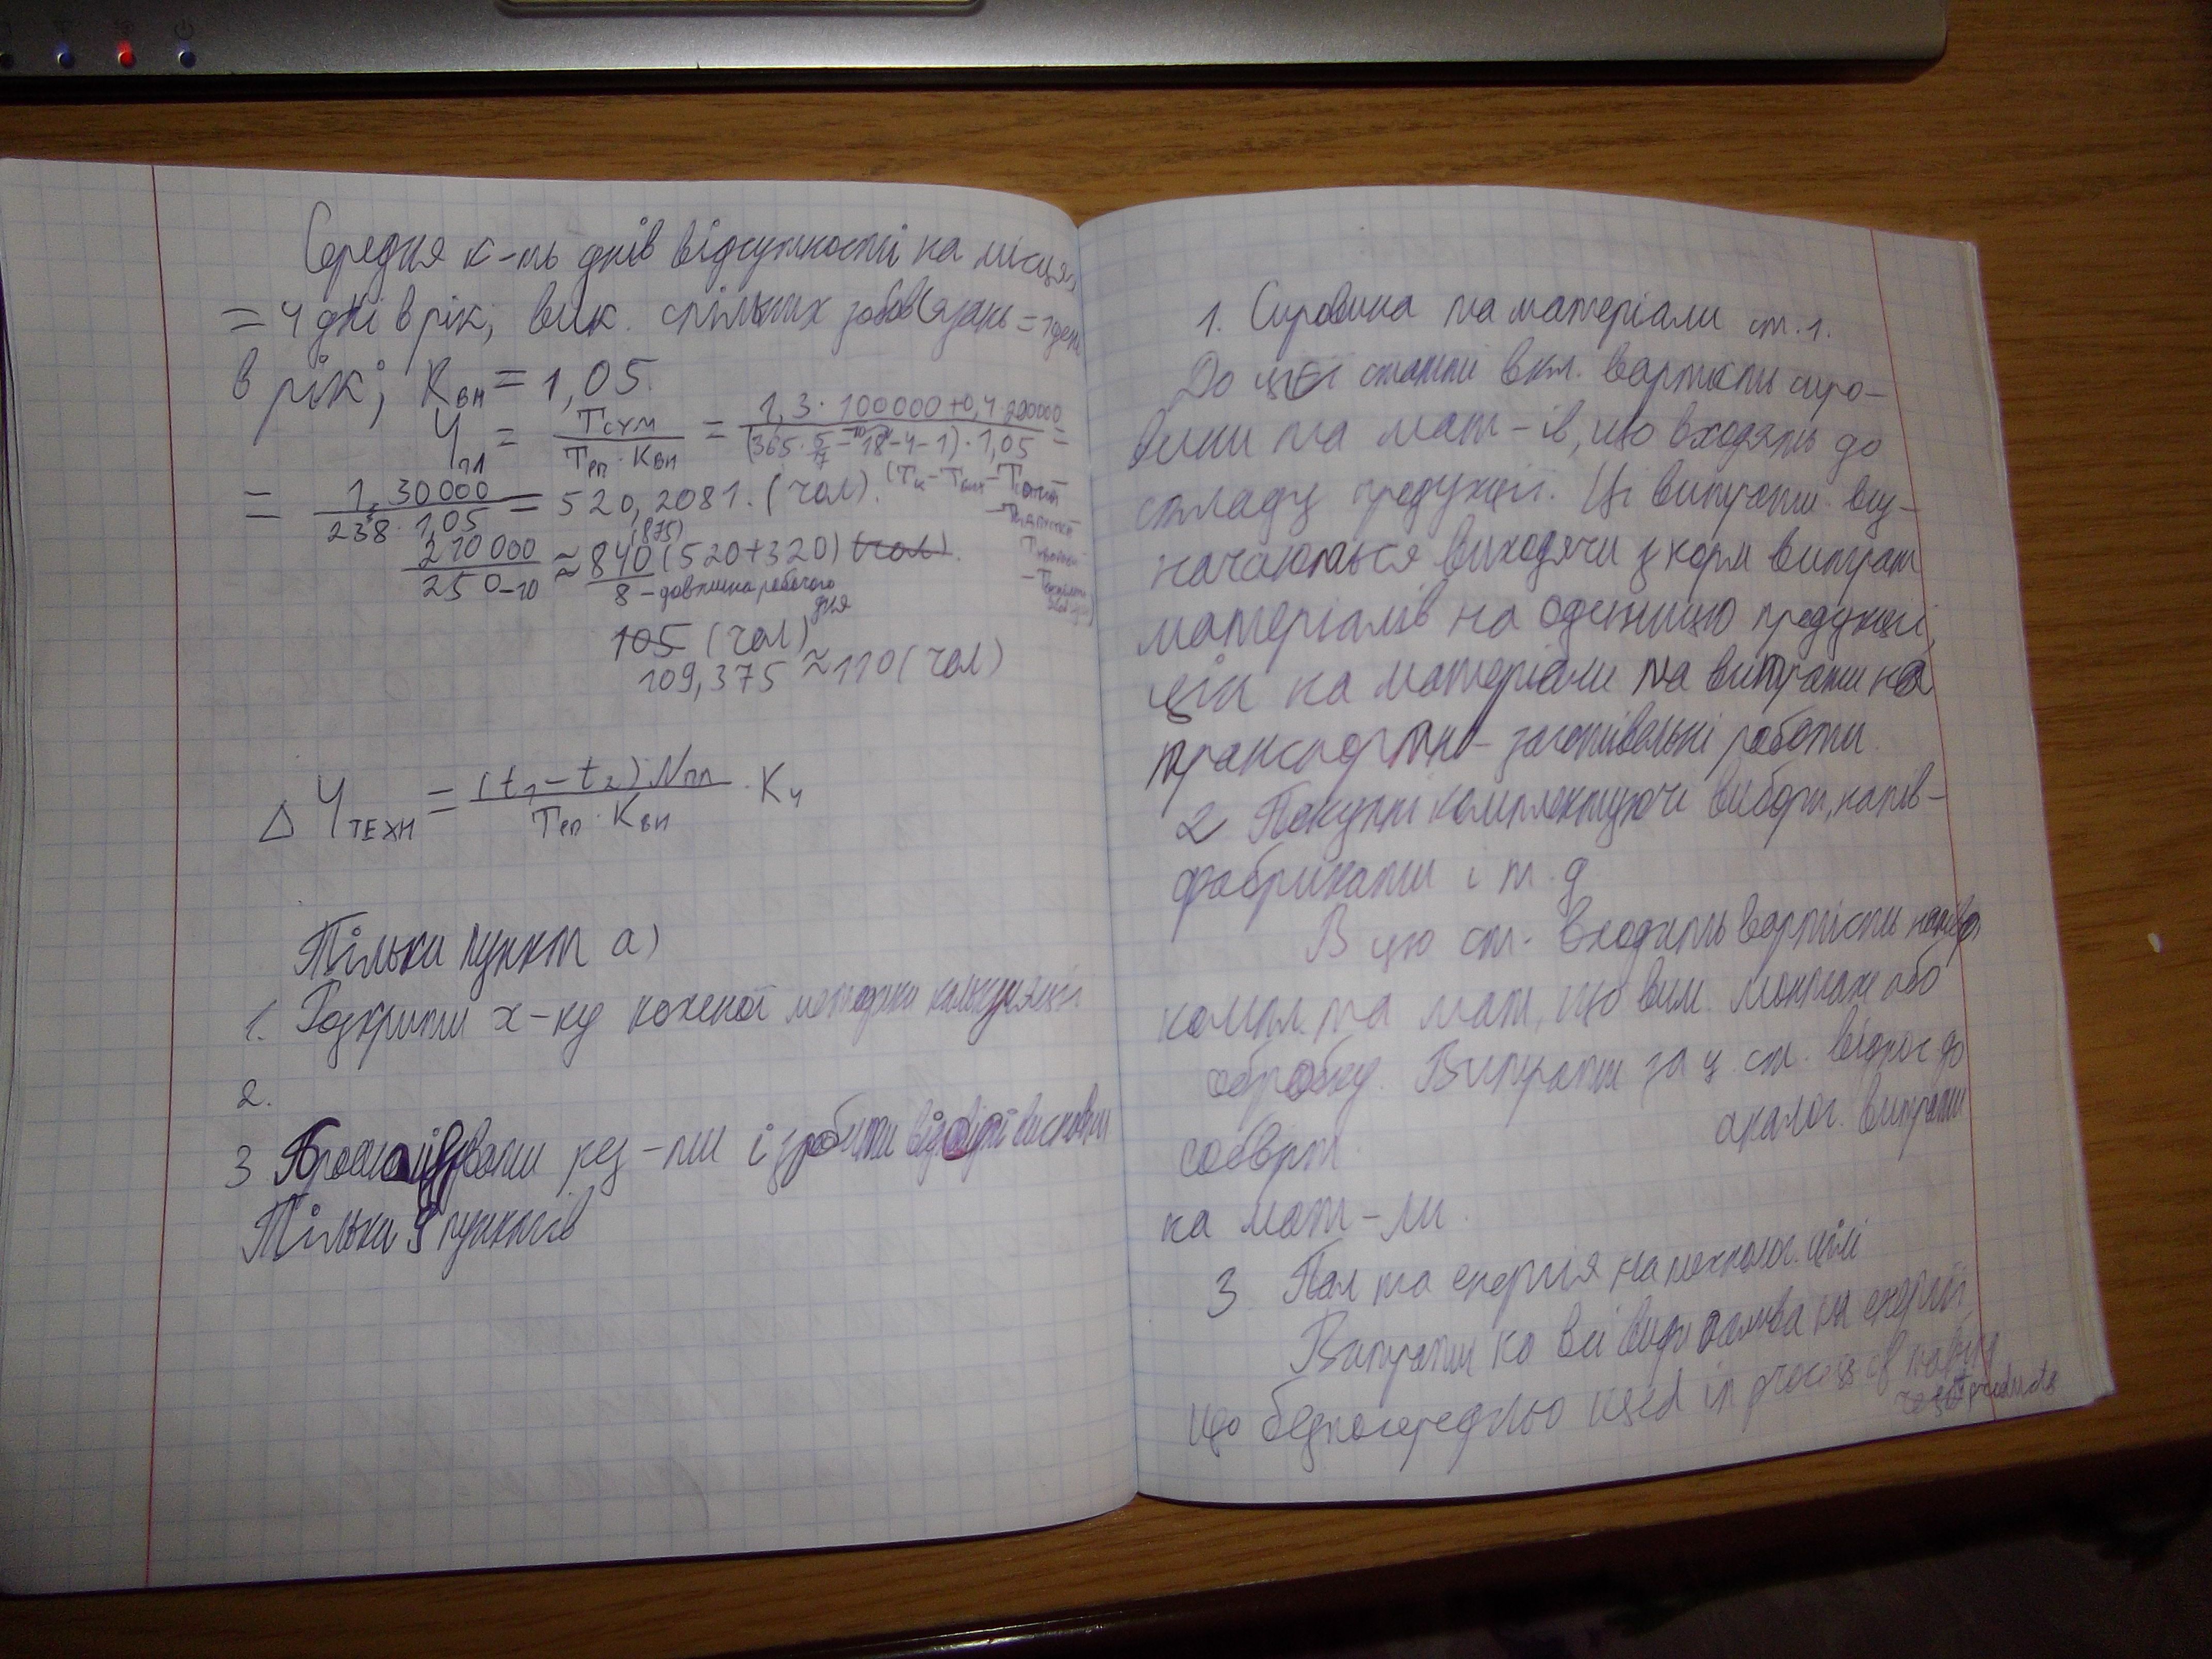 Середня к-ть днів відсутності на місця,
= 4 дні в рік; вик. спільних зобов'язань = 1 день
в рік; Kвн = 1,05.
Чпл = Tсум / Tрп · Kвн = 1,3 · 100000 + 0,4 · 200000 / (365 · 5/7 - 10 - 18 - 4 - 1) · 1,05 =
= 1,30000 / 238 · 1,05 = 520,2081. (чол).
210000 / 250-10 ≈ 840 (875) (520+320) (чол).
8 - довжина робочого
дня
105 (чол)
109,375 ≈ 110 (чол)
Δ Чтехн = (t1 - t2) Nпл / Tрп · Kвн · Kч
Тільки пункт а)
1. Розкрити х-ку кожної методики калькуляції
2.
3 Проаналізувати рез-ти і зробити відповідні висновки
Тільки 9 пунктів
1. Сировина та матеріали ст. 1.
До цєї статті вкл. вартість сиро-
вини та мат-ів, що входять до
складу продукції. Ці витрати виз-
начаються виходячи з норм витрат
матеріалів на одиницю продукції,
цін на матеріали та витрати на
транспортно-заготівельні роботи.
2 Покупні комплектуючі вироби, напів-
фабрикати і т.д
В цю ст. входить вартість
компл. та мат, що вим. монтаж або
обробку. Витрати за ц. ст. віднос до
собврт. аналог. витрати
на мат-ли.
3 Пал та енергія на технолог. цілі
Витрати на всі види палива та енергії
що безпосередньо used in process of making
products